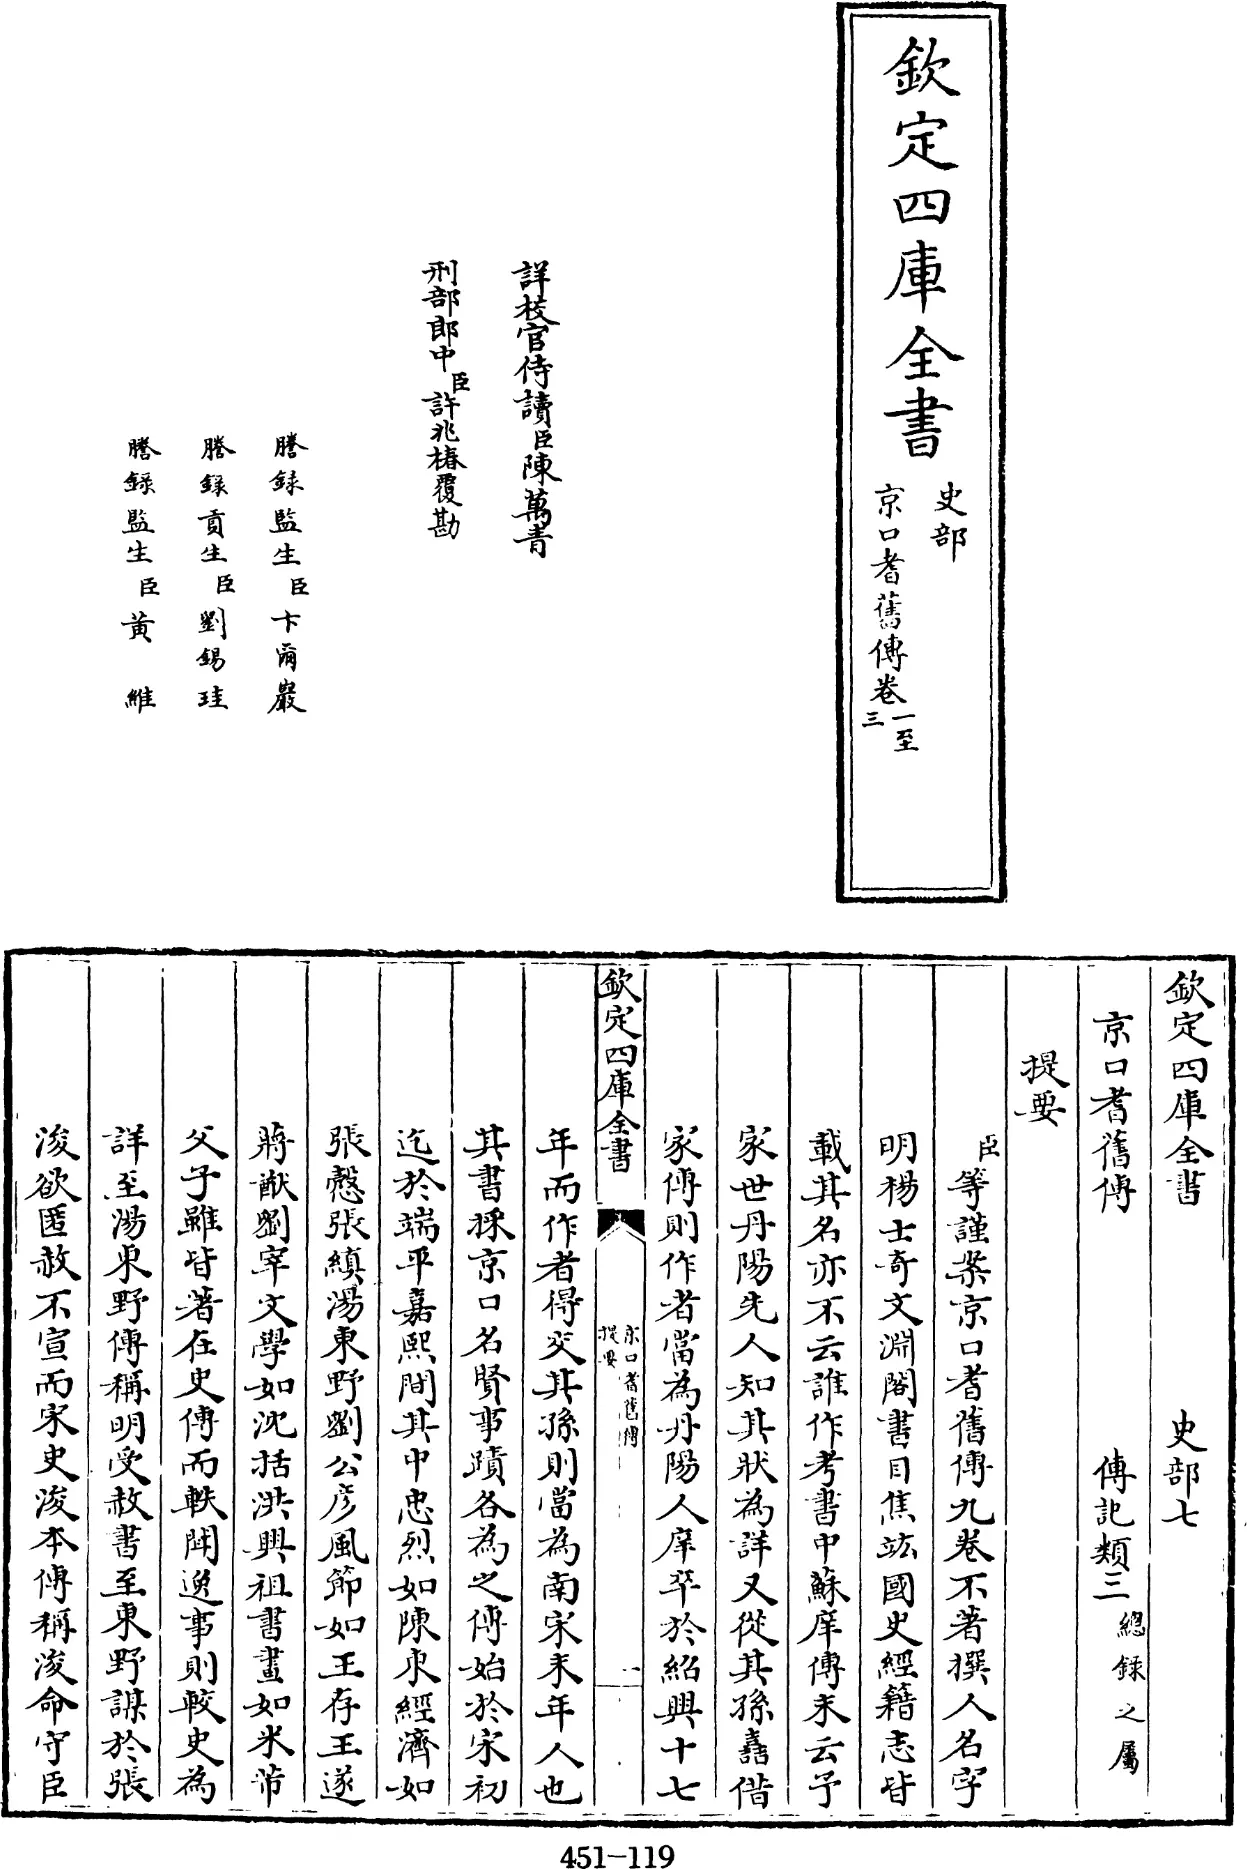 欽定四庫全書
史部
京口耆舊傳卷一至三
詳校官侍讀臣陳萬青
刑部郎中臣許兆椿覆勘
謄錄監生臣卞爾巖
謄錄貢生臣劉錫珪
謄錄監生臣黃維
欽定四庫全書 史部七
京口耆舊傳 傳記類三總錄之屬
提要
臣等謹案京口耆舊傳九卷不著撰人名字
明楊士奇文淵閣書目焦竑國史經籍志皆
載其名亦不云誰作考書中蘇庠傳末云予
家世丹陽先人知其狀為詳又從其孫嚞借
家傳則作者當為丹陽人庠卒於紹興十七
欽定四庫全書
京口耆舊傳
提要
一
年而作者得交其孫則當為南宋末年人也
其書採京口名賢事蹟各為之傳始於宋初
迄於端平嘉熙間其中忠烈如陳東經濟如
張慤張縝湯東野劉公彥風節如王存王遂
蔣猷劉宰文學如沈括洪興祖書畫如米芾
父子雖皆著在史傳而軼聞逸事則較史為
詳至湯東野傳稱明受赦書至東野謀於張
浚欲匿赦不宣而宋史浚本傳稱浚命守臣
451-119